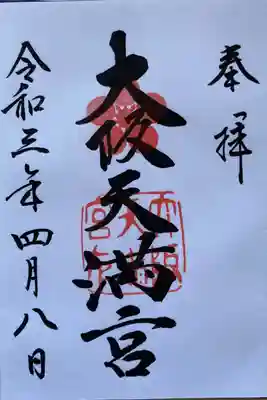 奉拝
大阪天満宮
令和三年四月八日